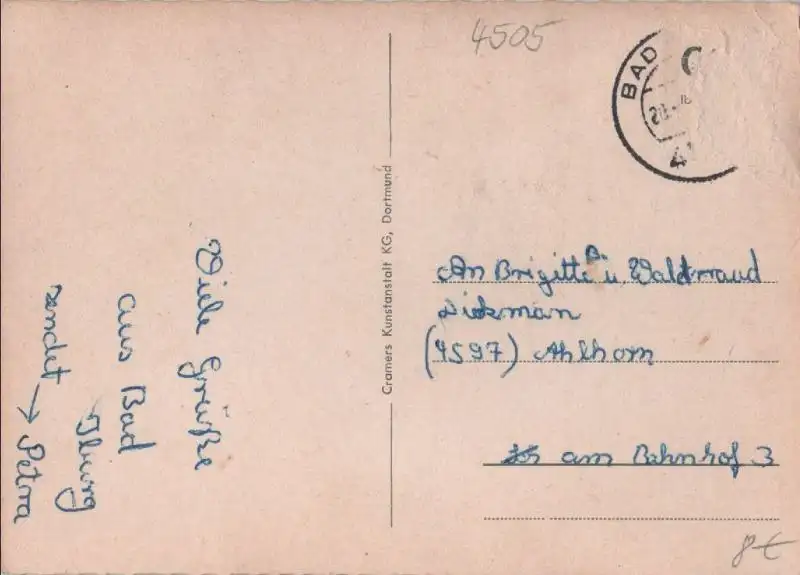 4505
BAD
20.
4
Viele Grüße
aus Bad
Iburg
sendet → Petra
Cramers Kunstanstalt KG, Dortmund
An Brigitte u. Waldtraud
Diekman
(4597) Ahlhorn
am Bahnhof 3
8 €